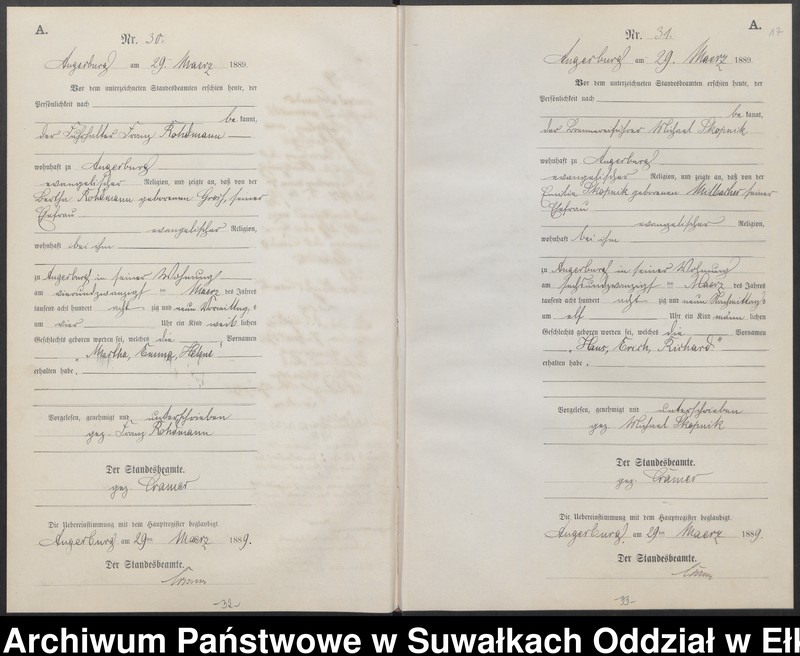 A.
Nr. 30.
Angerburg am 29. Maerz 1889.
Vor dem unterzeichneten Standesbeamten erschien heute, der
Persönlichkeit nach
be kannt,
der Franz Rohdmann
wohnhaft zu Angerburg
evangelischer Religion, und zeigte an, daß von der
Bertha Rohdmann geborenen seiner
Ehefrau
evangelischer Religion,
wohnhaft bei ihm
zu Angerburg in seiner Wohnung
am vierundzwanzigsten Maerz des Jahres
tausend acht hundert acht zig und neun Vormittags
um vier Uhr ein Kind weib lichen
Geschlechts geboren worden sei, welches die Vornamen
„Martha, Emma, Helene"
erhalten habe.
Vorgelesen, genehmigt und unterschrieben
gez. Franz Rohdmann
Der Standesbeamte.
gez. Cramer
Die Uebereinstimmung mit dem Hauptregister beglaubigt.
Angerburg am 29ten Maerz 1889.
Der Standesbeamte.
-32-
A.
17
Nr. 31.
Angerburg am 29. Maerz 1889.
Vor dem unterzeichneten Standesbeamten erschien heute, der
Persönlichkeit nach
be kannt,
der Brennereiführer Michael Skopnik
wohnhaft zu Angerburg
evangelischer Religion, und zeigte an, daß von der
Emilie Skopnik geborenen seiner
Ehefrau
evangelischer Religion,
wohnhaft bei ihm
zu Angerburg in seiner Wohnung
am sechsundzwanzigsten Maerz des Jahres
tausend acht hundert acht zig und neun Nachmittags
um elf Uhr ein Kind männ lichen
Geschlechts geboren worden sei, welches die Vornamen
„Hans, Erich, Richard"
erhalten habe.
Vorgelesen, genehmigt und unterschrieben
gez. Michael Skopnik
Der Standesbeamte.
gez. Cramer
Die Uebereinstimmung mit dem Hauptregister beglaubigt.
Angerburg am 29ten Maerz 1889.
Der Standesbeamte.
-33-
Archiwum Państwowe w Suwałkach Oddział w Ełk